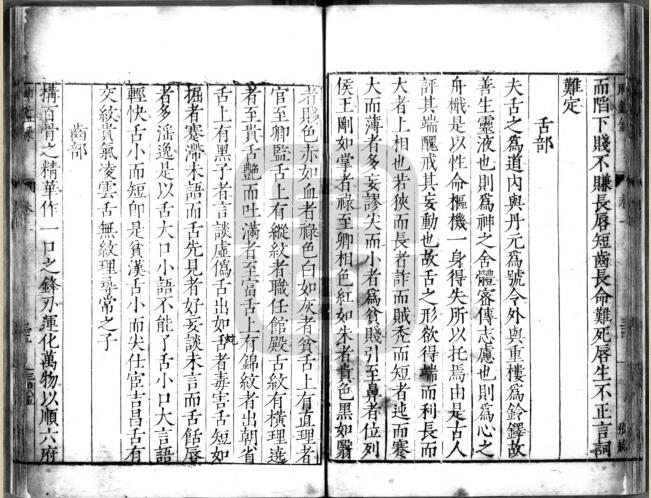 而陷下賤不賺長唇短齒長命難死唇生不正言詞
難定
舌部
夫舌之為道內與丹元為號令外與重樓為鈴鐸故
善生靈液也則為神之舍體密傳志慮也則為心之
舟檝是以性命樞機一身得失所以托焉由是古人
評其端醜戒其妄動也故舌之形欲得端而利長而
大者上相也若狹而長者詐而賊禿而短者迍而蹇
大而薄者多妄謬尖而小者為貧賤引至鼻者位列
侯王剛如掌者祿至卿相色紅如朱者貴色黑如翳
者賤色赤如血者祿色白如灰者貧舌上有直理者
官至卿監舌上有縱紋者職任館殿舌紋有橫理遶
者至貴舌艷而吐滿者至富舌上有錦紋者出朝省
舌上有黑子者言談虛偽舌出如蛇者毒害舌短如
掘者蹇滯未語而舌先見者好妄談未言而舌餂唇
者多淫逸是以舌大口小語不能了舌小口大言語
輕快舌小而短即是貧漢舌小而尖仕宦吉昌舌有
交紋貴氣凌雲舌無紋理尋常之子
齒部
搆百骨之精華作一口之鋒刃運化萬物以順六府